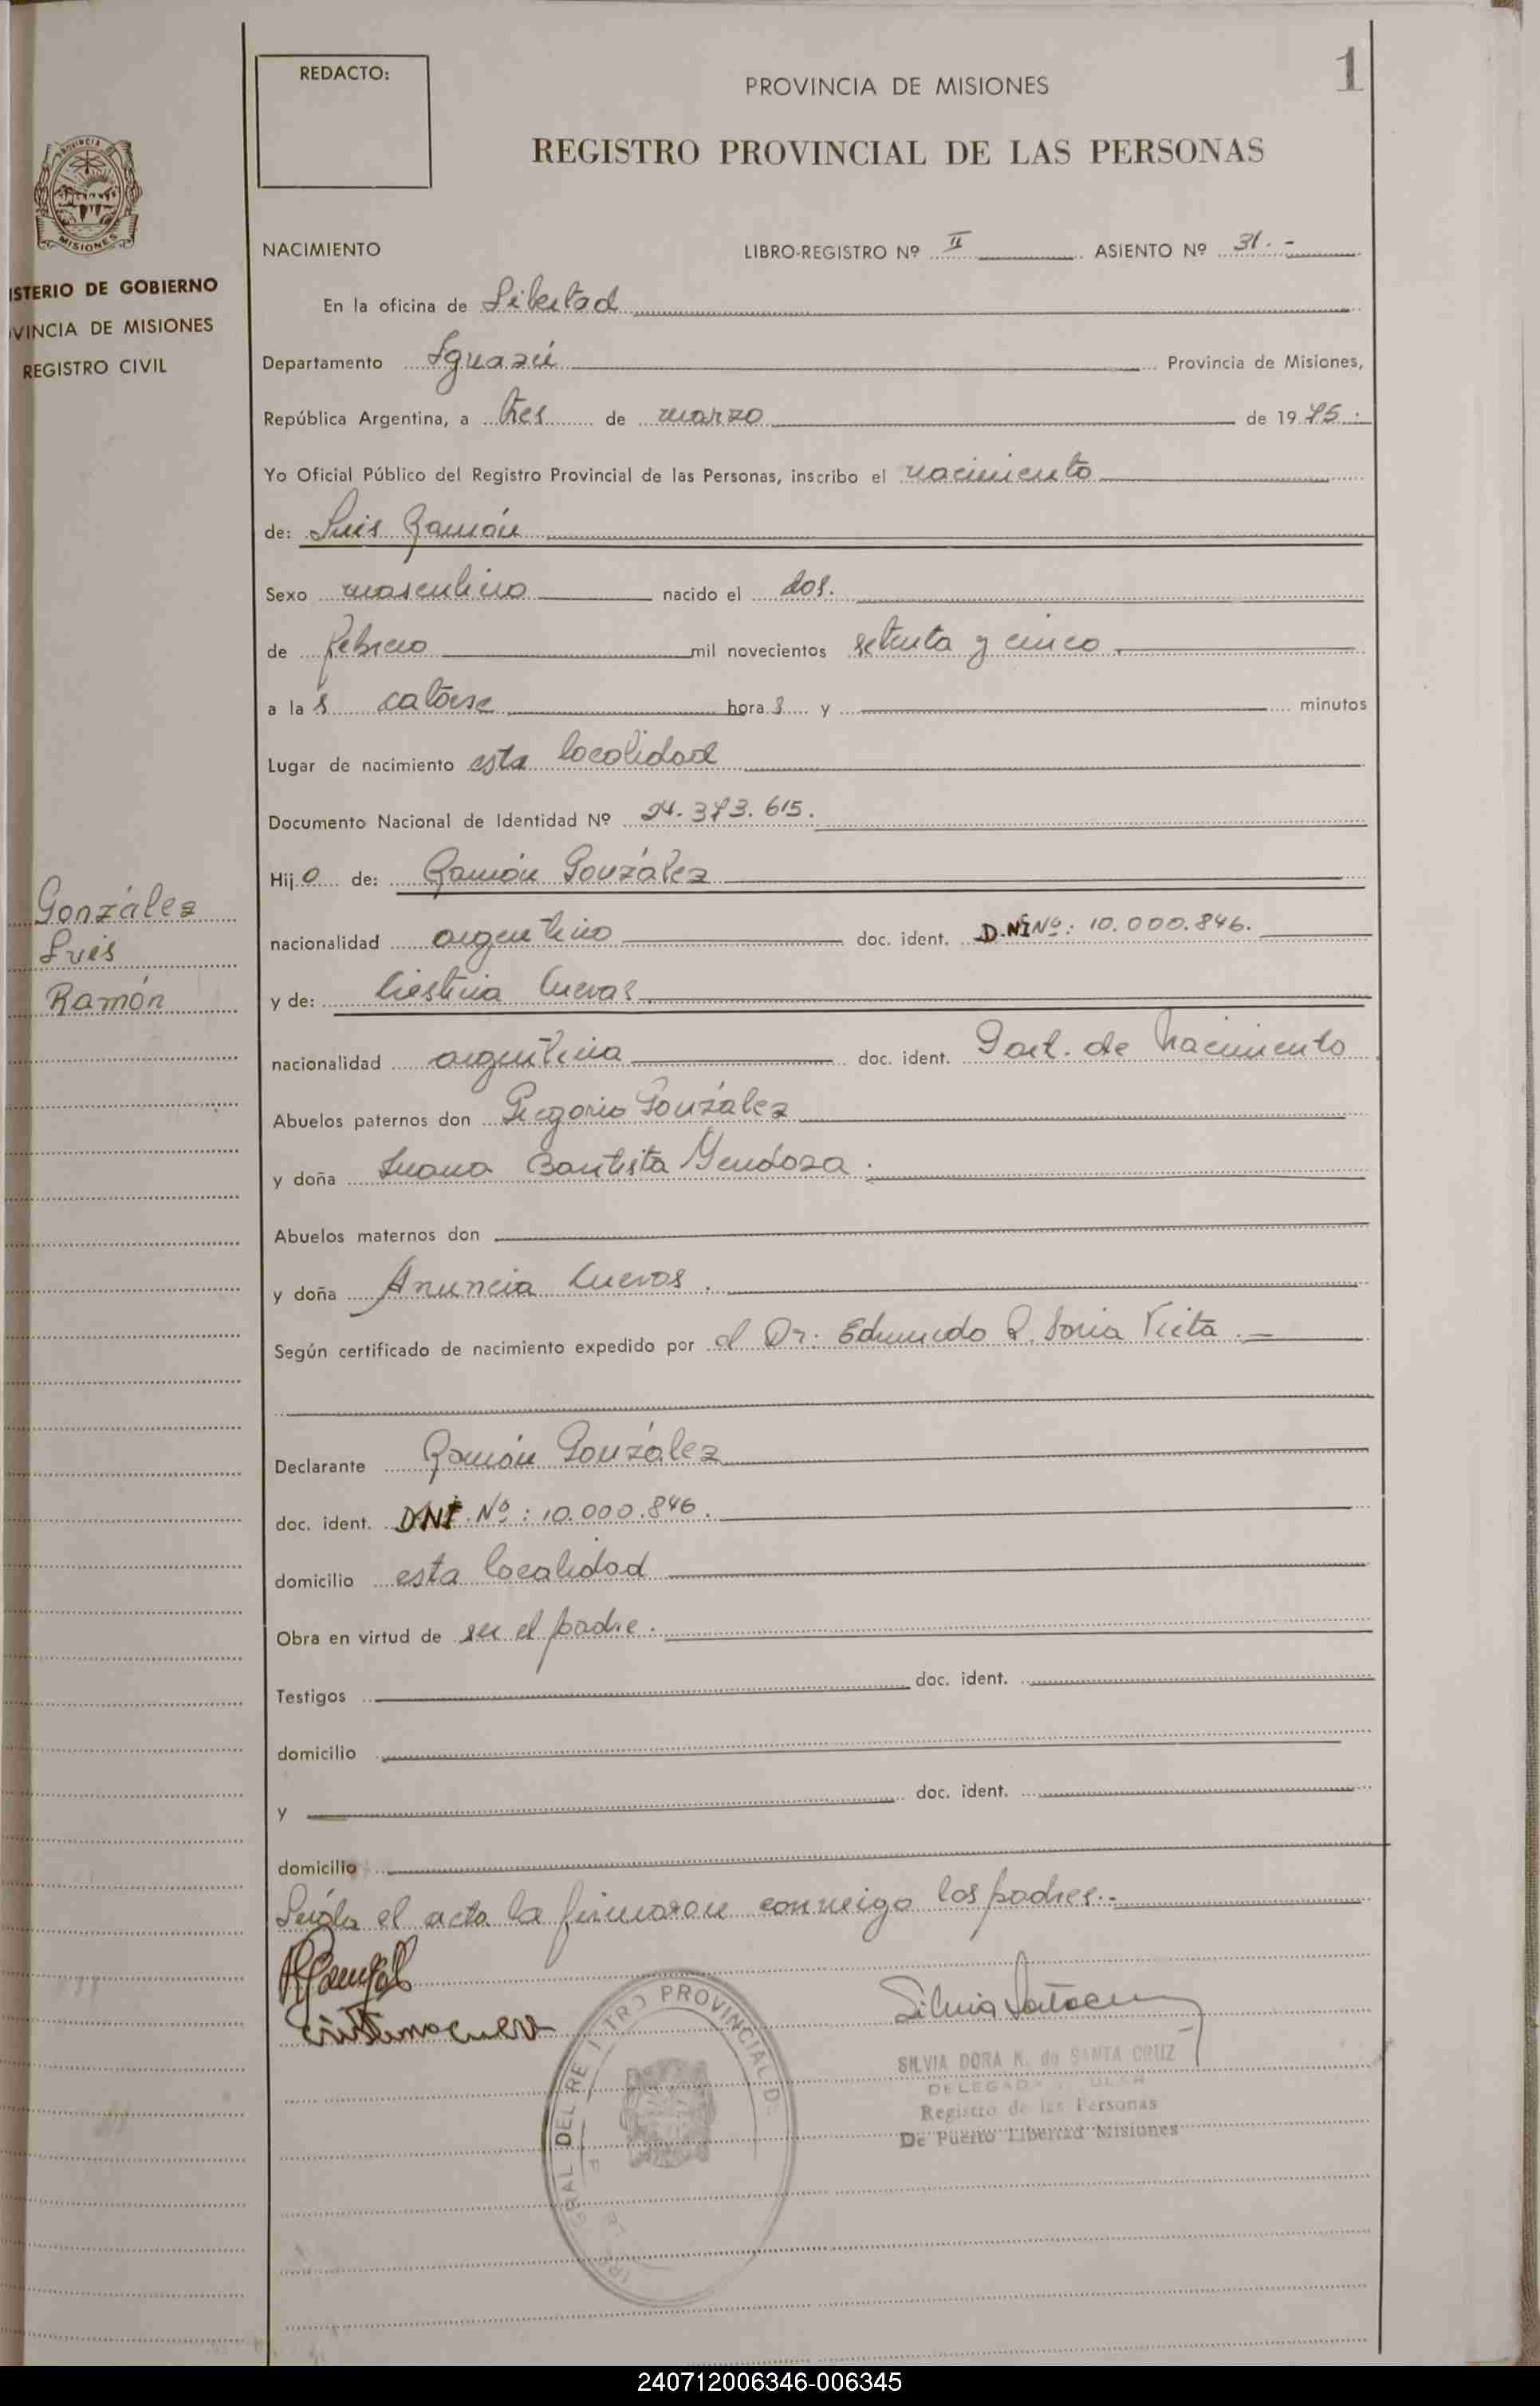 1
REDACTO:
PROVINCIA DE MISIONES
REGISTRO PROVINCIAL DE LAS PERSONAS
PROVINCIA DE
MISIONES
ISTERIO DE GOBIERNO
VINCIA DE MISIONES
REGISTRO CIVIL
González
Luis
Ramón
NACIMIENTO LIBRO-REGISTRO Nº II ASIENTO Nº 31.-
En la oficina de Libertad
Departamento Iguazú Provincia de Misiones,
República Argentina, a tres de marzo de 1975.
Yo Oficial Público del Registro Provincial de las Personas, inscribo el nacimiento
de: Luis Ramón
Sexo masculino nacido el dos.
de febrero mil novecientos setenta y cinco.
a las catorse horas y minutos
Lugar de nacimiento esta localidad
Documento Nacional de Identidad Nº 24.373.615.
Hijo de: Ramón González
nacionalidad argentino doc. ident. D.NI Nº: 10.000.846.
y de: Cristina Cuevas
nacionalidad argentina doc. ident. Part. de Nacimiento
Abuelos paternos don Gregorio González
y doña Juana Bautista Mendoza.
Abuelos maternos don
y doña Anuncia Cuevas.
Según certificado de nacimiento expedido por el Dr. Edmundo R. Soria Vieta.
Declarante Ramón González
doc. ident. DNI. Nº: 10.000.846.
domicilio esta localidad
Obra en virtud de ser el padre.
Testigos doc. ident.
domicilio
y doc. ident.
domicilio
Leída el acta la firmaron conmigo los padres.-
SILVIA DORA K. de SANTA CRUZ
Registro de las Personas
De Puerto Libertad Misiones
GRAL DEL REGISTRO PROVINCIAL DE
240712006346-006345